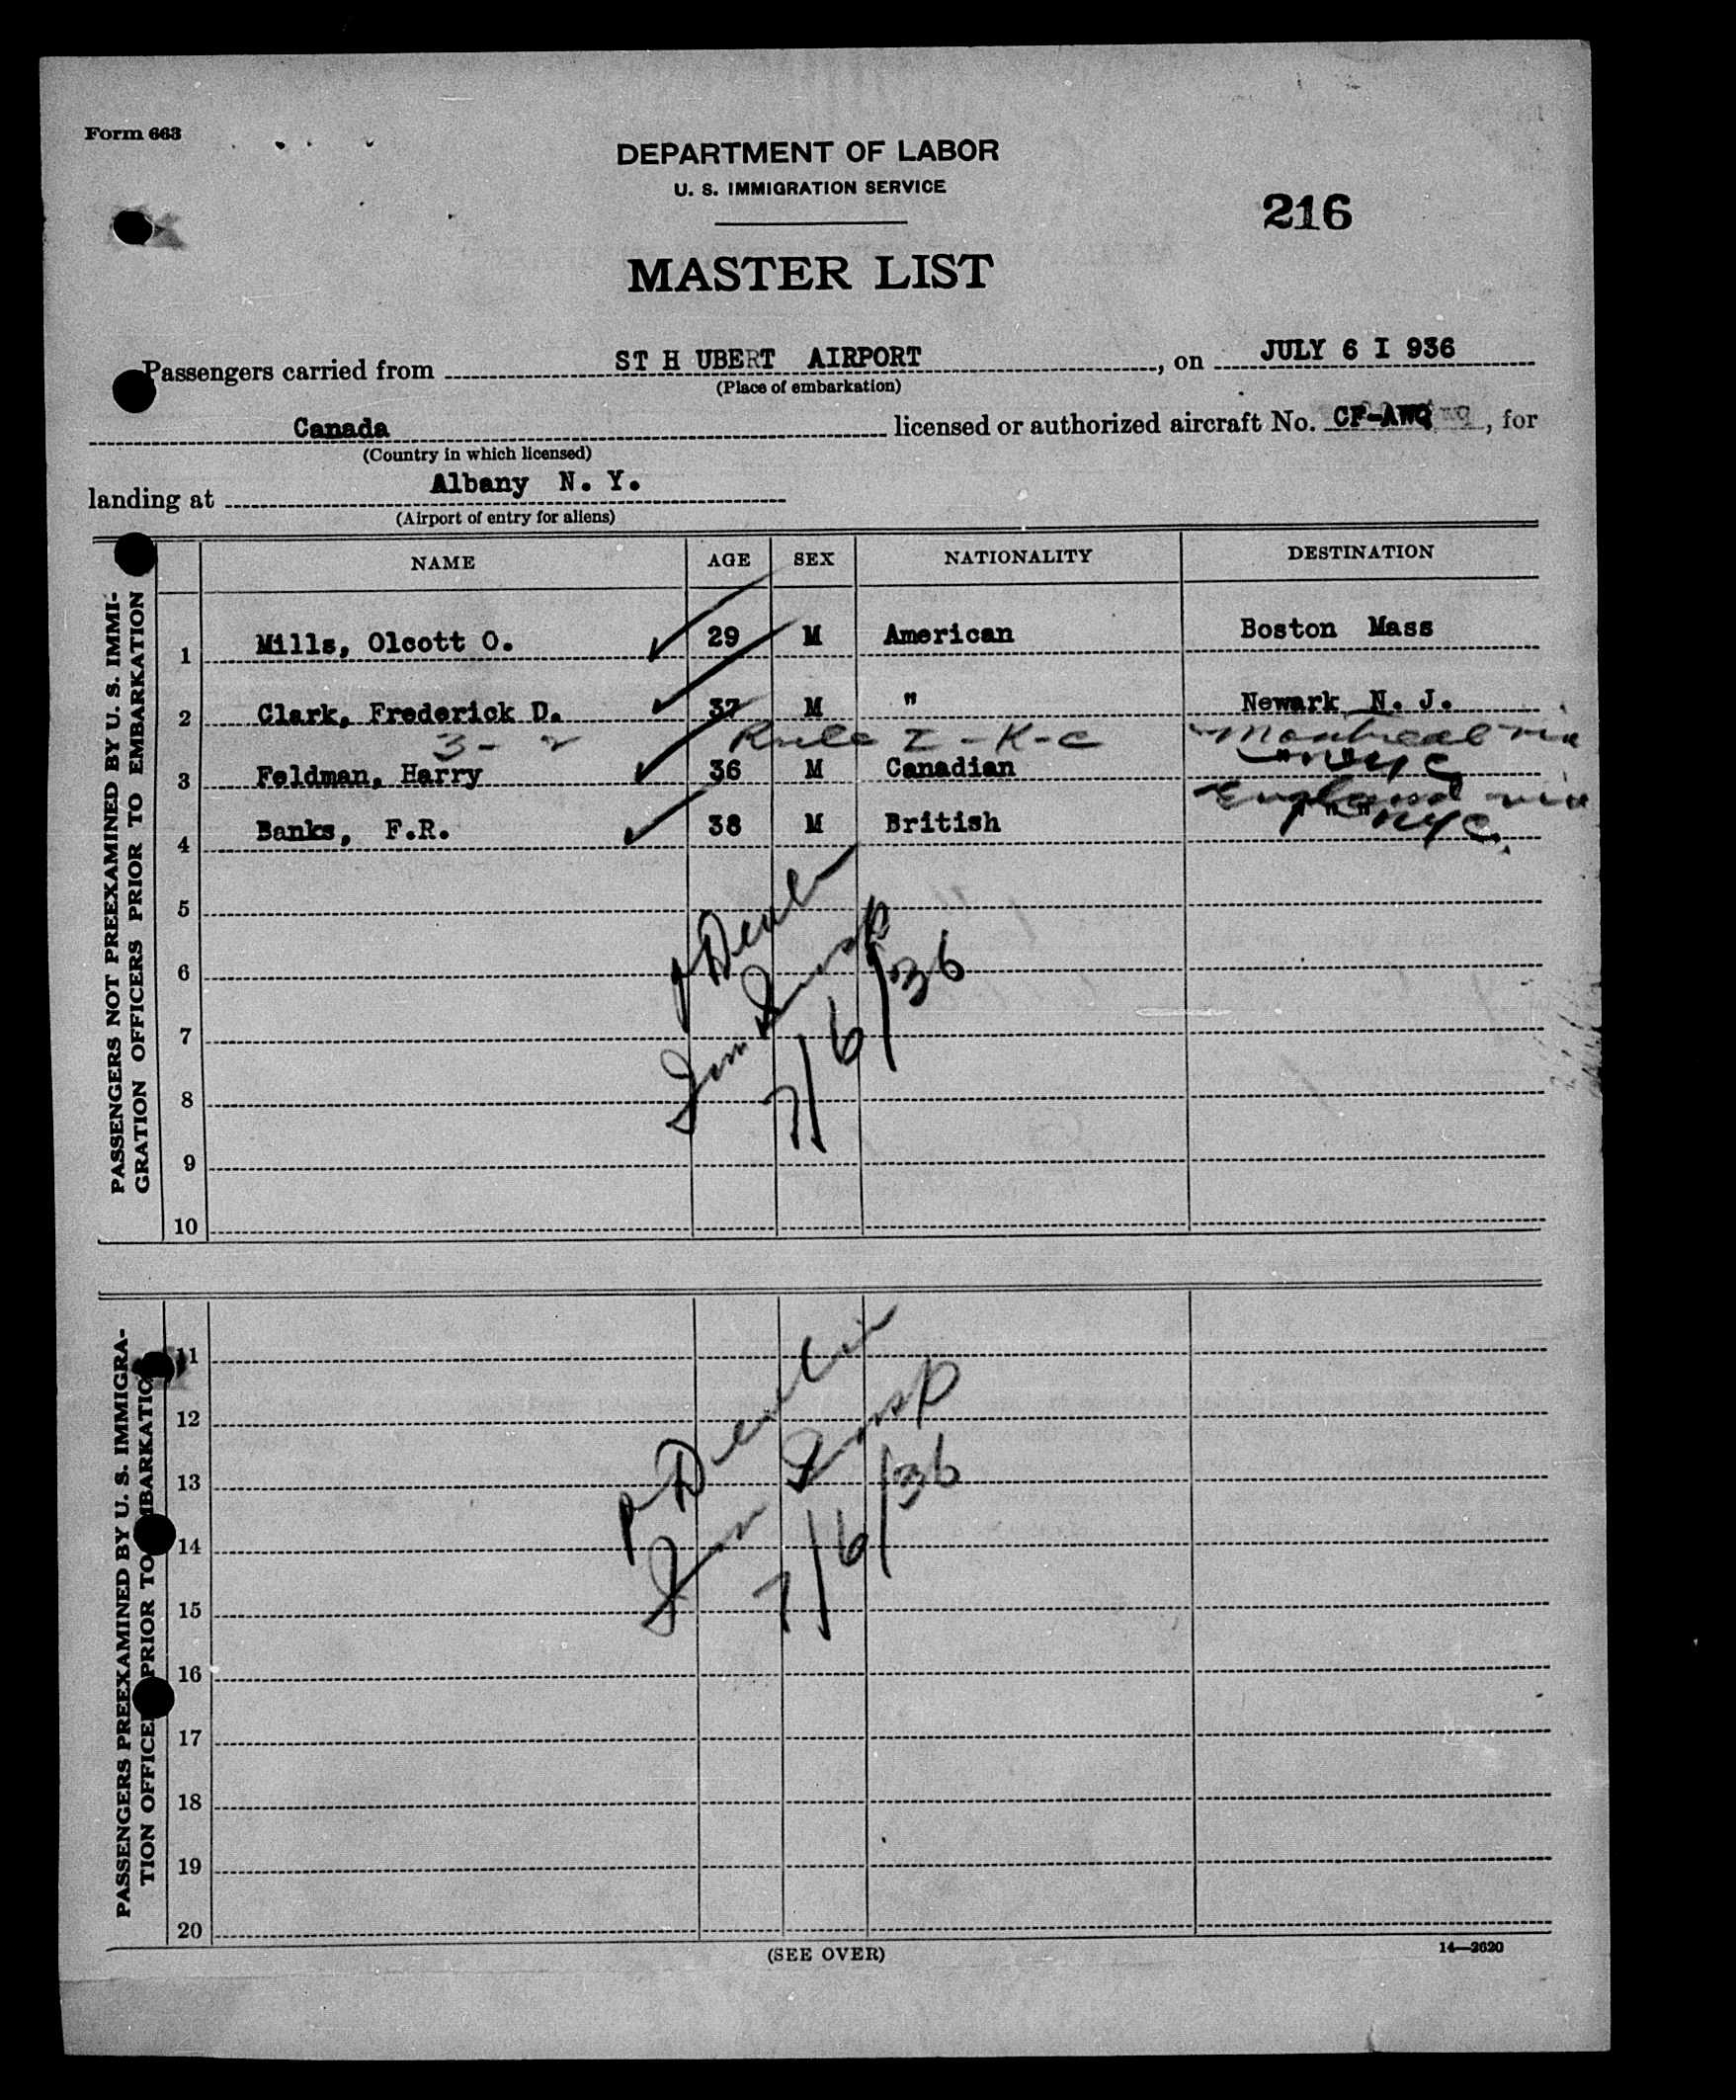 Form 663
DEPARTMENT OF LABOR
U. S. IMMIGRATION SERVICE
216
MASTER LIST
Passengers carried from ST H UBERT AIRPORT, on JULY 6 I 936
(Place of embarkation)
Canada licensed or authorized aircraft No. CF-AWQ, for
(Country in which licensed)
landing at Albany N. Y.
(Airport of entry for aliens)
PASSENGERS NOT PREEXAMINED BY U. S. IMMI-
GRATION OFFICERS PRIOR TO EMBARKATION
NAME AGE SEX NATIONALITY DESTINATION
1 Mills, Olcott O. 29 M American Boston Mass
2 Clark, Frederick D. 37 M " Newark N. J.
3- Rule I-K-c Montreal via
3 Feldman, Harry 36 M Canadian " " NYC
England via
4 Banks, F.R. 38 M British " " " NYC.
5
6
7
8
9
10
Imm Insp
7/6/36
PASSENGERS PREEXAMINED BY U. S. IMMIGRA-
TION OFFICE PRIOR TO MBARKATIO
11
12
13
14
15
16
17
18
19
20
Imm Insp
7/6/36
(SEE OVER)
14—2620